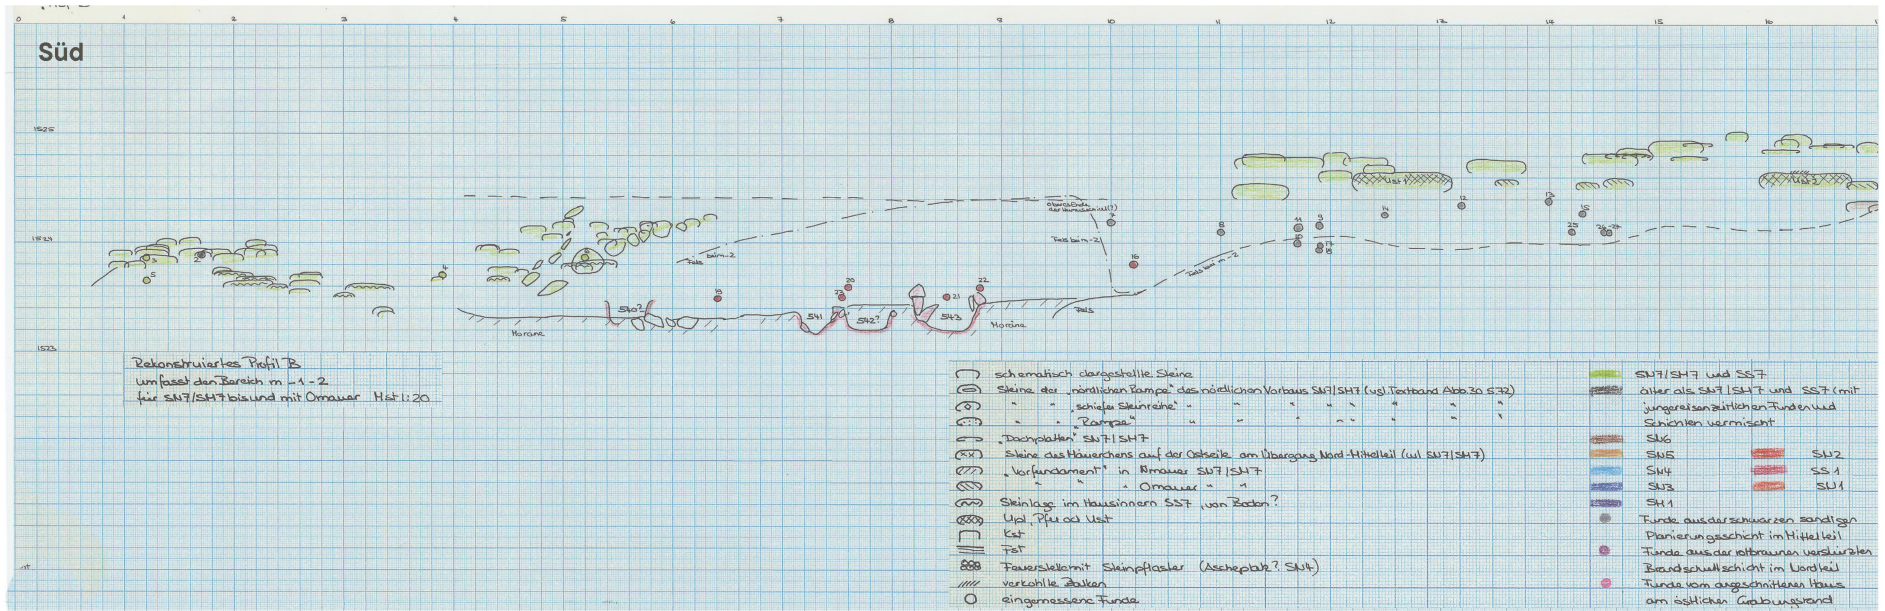 0 1 2 3 4 5 6 7 8 9 10 11 12 13 14 15 16
Süd
1525
1524
1523
Ust 1
Ust 2
oberes Ende
Fels bei m -2
Fels bei m -2
Fels bei m -2
Fels
540?
541
542?
543
Moräne
Moräne
3 2 5 4 6 7 8 11 9 10 17 18 14 12 13 15 25 26-27 16 19 20 23 21 22
Rekonstruiertes Profil B
umfasst den Bereich m -1-2
für SN7/SM7 bis und mit Omauer Mst 1:20
schematisch dargestellte Steine
Steine der "nördlichen Rampe" des nördlichen Vorbaus SN7/SM7 (vgl. Textband Abb. 30 S. 72)
" " "schiefe Steinreihe" " " " " " " " "
" " "Rampe" " " " " " " " "
"Dachplatten" SN7/SM7
Steine des Mäuerchens auf der Ostseite am Übergang Nord-Mittelteil (wl SN7/SM7)
"Vorfundament" in Wmauer SN7/SM7
" " " Omauer " "
Steinlage im Hausinnern SS7, von Boden?
Upl, Pfu od Ust
Kst
Fst
Feuerstelle mit Steinpflaster (Ascheplatz? SN4)
verkohlte Balken
eingemessene Funde
SN7/SM7 und SS7
älter als SN7/SM7 und SS7 (mit
jungereisenzeitlichen Funden und
Schichten vermischt
SN6
SN5 SN2
SN4 SS1
SN3 SN1
SM1
Funde aus der schwarzen sandigen
Planierungsschicht im Mittelteil
Funde aus der rotbraunen verstürzten
Brandschuttschicht im Nordteil
Funde vom angeschnittenen Haus
am östlichen Grabungsrand